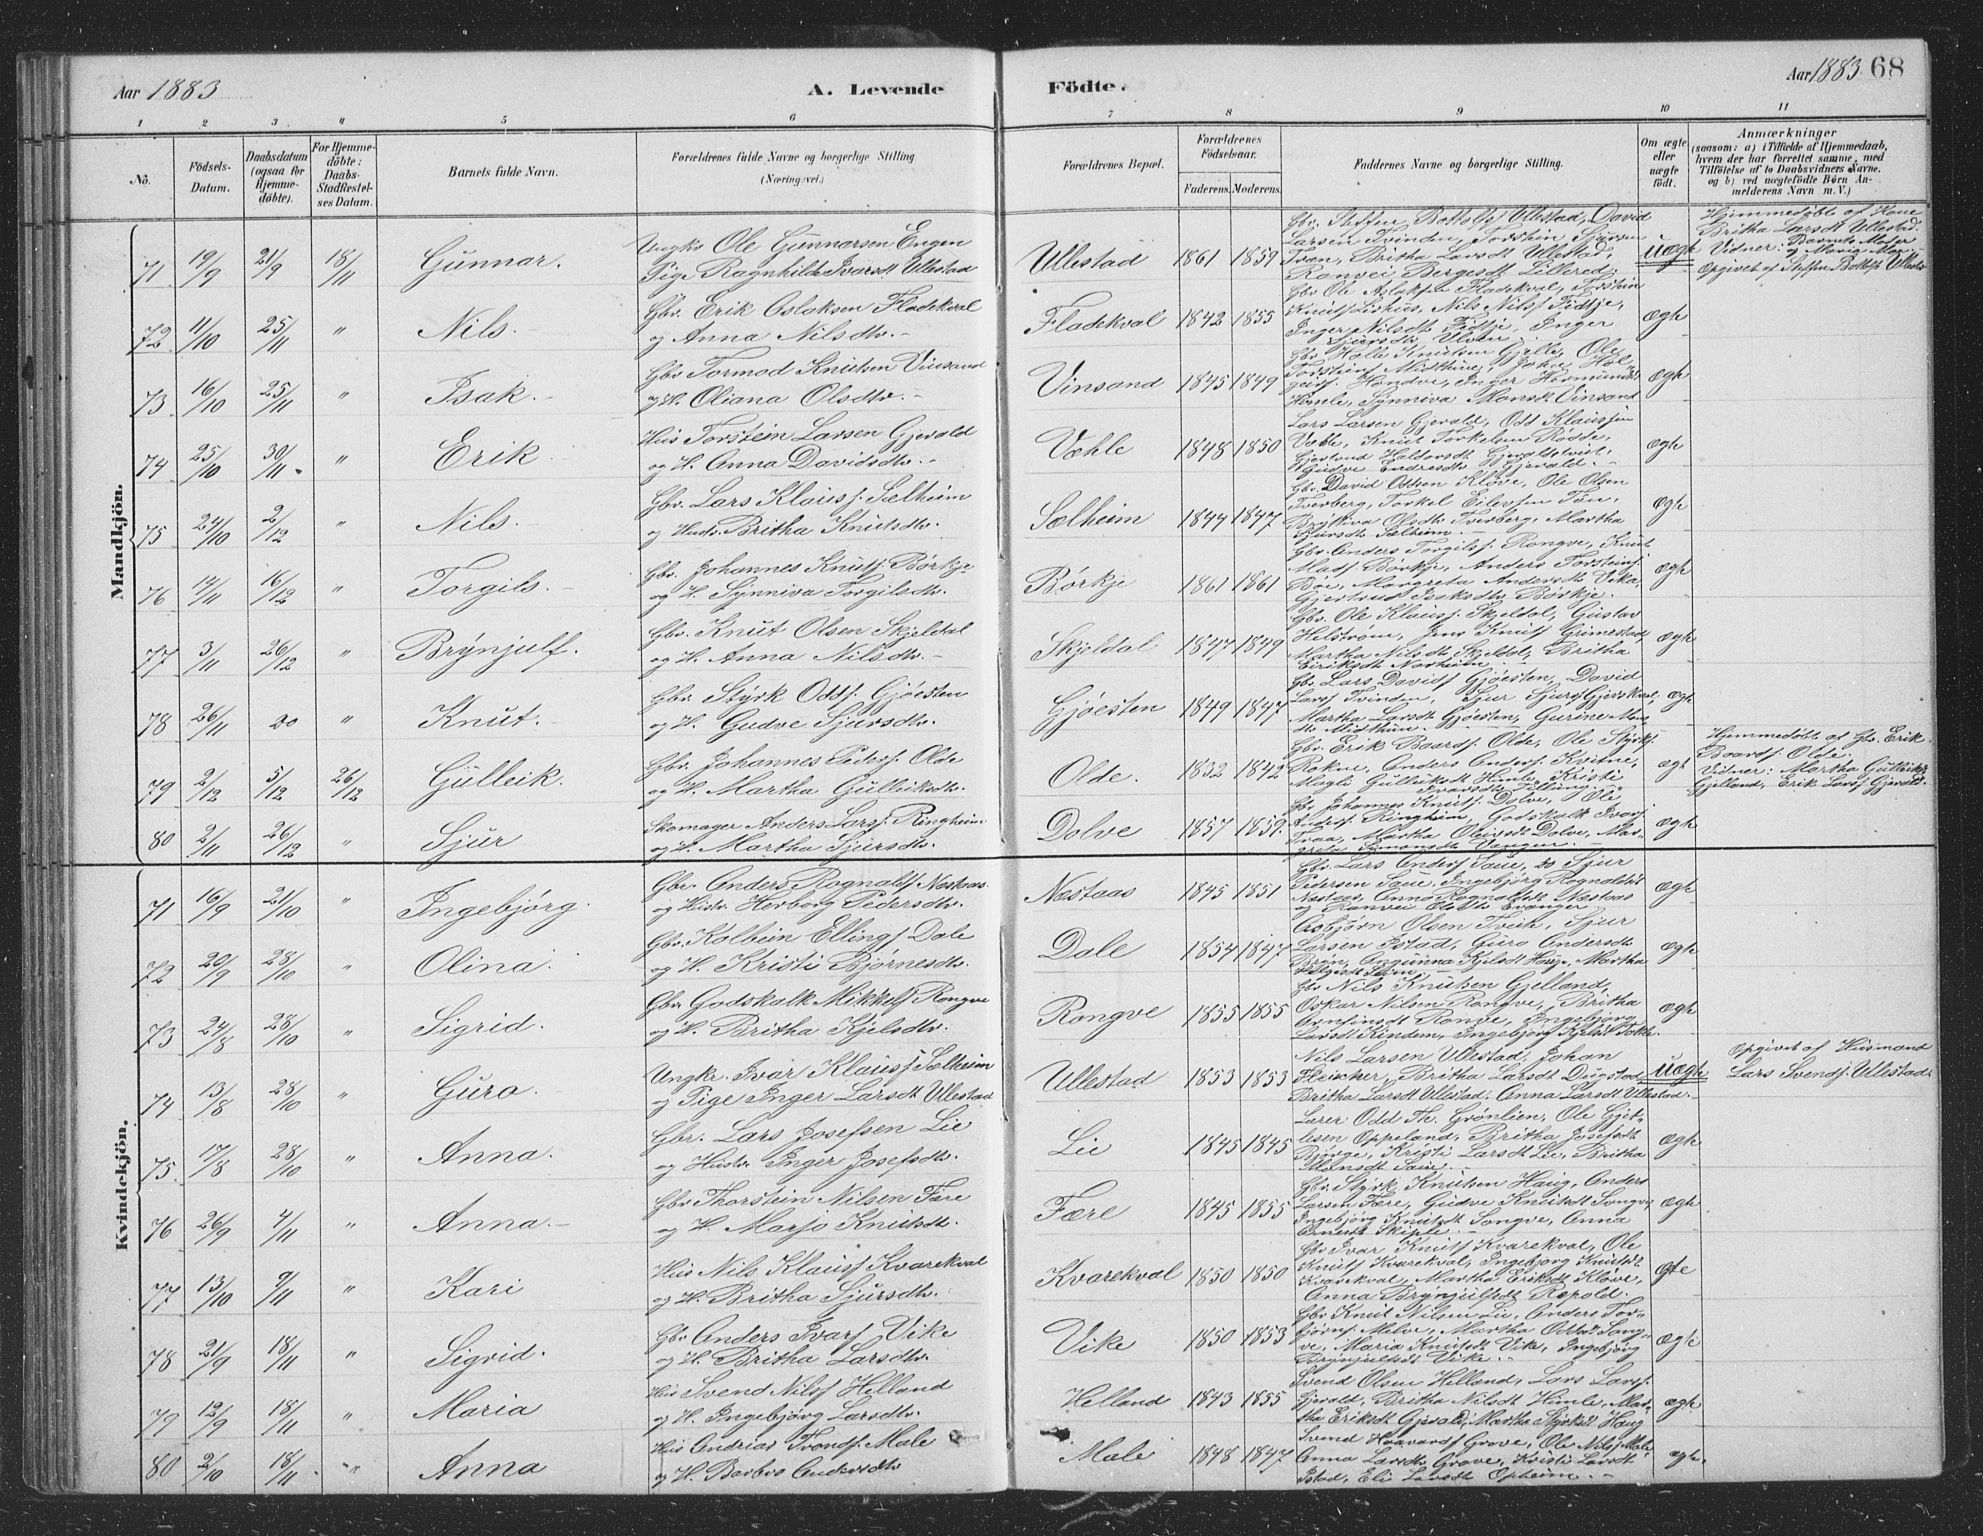 Aar 1883
A. Levende
Födte.
Aar 1883 68
1 2 3 4 5 6 7 8 9 10 11
No.
Födsels-Datum.
Daabsdatum (ogsaa for Hjemmedöbte).
For Hjemmedöbte: Daabs-Stadfæstelses Datum.
Barnets fulde Navn.
Forældrenes fulde Navne og borgerlige Stilling
(Næringsvei.)
Forældrenes Bopæl.
Forældrenes Födselsaar.
Faderens. Moderens.
Faddernes Navne og borgerlige Stilling.
Om ægte eller uægte födt.
Anmærkninger
(saasom: a) i Tilfælde af Hjemmedaab, hvem der har forrettet samme, med Tilföielse af to Daabsvidners Navne, og b) ved uægtefödte Börn Anmelderens Navn m. V.)
Mandkjön.
71 19/9 21/9 18/11 Gunnar. Ungkr Ole Gunnarsen Engen
Pige Ragnhilde Ivarsdt Ullestad
Ullestad 1861 1859
Gbr. Steffen Bottolfs Ullestad, David
Larsen Tvinden, Torstein
Tvan, Britha Larsdt Ullestad,
Ranvei Bergesdt Lillered.
uægte
Hjemmedøbt af Kone
Britha Larsdt Ullestad.
Vidner: Barnets Moder
Opgivet af Steffen Bottolfs Ullestad
72 11/10 25/11 " Nils. Gbr. Erik Aslaksen Fladekval
og Anna Nilsdtr.
Fladekval 1842 1855
Gbr Ole Aslaksen Fladekval, Torstein
Knuts Liskus, Nils Nilss Fidtje,
Inger Nilsdt Fidtje, Inger
Sjursdt
ægte
73 16/10 25/11 " Isak. Gbr Tormod Knutsen Vinsand
og H. Oliana Olsdtr.
Vinsand 1845 1849
Gbr Halle Knutsen Gjelle, Ole
Torsteins Midthun,
Hondve, Inger Hermunds
Himle, Synniva Monsdt Vinsand
ægte
74 25/10 30/11 " Erik. Hus Torstein Larsen Gjerald
og H. Anna Davidsdtr.
Væhle 1848 1850
Lars Larsen Gjerald, Odd Klaussen
Væhle, Knut Torkelsen Rødde,
Gjertrud Haldorsdt Gjeraldstvist,
Gudve Endresdtr Gjerald.
ægte
75 24/10 2/12 " Nils. Gbr. Lars Klauss. Sælheim
og Hustr. Britha Knutsdtr.
Sælheim 1844 1847
Gbr. David Oddsen Kløve, Ole Olsen
Tverberg, Torkel Eilevsen Tøn,
Brytteva Olsdtr Tverberg, Martha
Sjursdt Sælheim.
ægte
76 14/11 16/12 " Torgils. Gbr. Johannes Knuts Børkje
og H. Synniva Torgilsdtr.
Børkje 1861 1861
Gbr. Anders Torgilss. Rongve, Knut
Mads Børkje, Anders Torsteins
Bøe, Margreta Andersdt Vika,
Gjertrud Isaksdtr Børkje.
ægte
77 3/11 26/12 " Brynjulf. Gbr. Knut Olsen Skjeldal
og H. Anna Nilsdtr.
Skjeldal 1847 1849
Gbr. Ole Klauss Skjeldal, Gustav
Helstrøm, Jens Knuts Grimestad
Martha Nilsdt Skjeldal, Britha
Eiriksdt Norheim.
ægte
78 26/11 do " Knut. Gbr. Styrk Odds. Gjøesten
og H. Gudve Sjursdtr.
Gjøesten 1849 1847
Gbr. Lars Davids Gjøesten, David
Larss Tvinden, Sjur Sjurss Gjerskval,
Martha Larsdt Gjøesten, Gurine
Midthun.
ægte
79 2/12 5/12 26/12 Gulleik. Gbr. Johannes Peders. Olde
og H. Martha Gulleiksdtr.
Olde. 1832 1842
Gbr. Erik Baards. Olde, Ole Styrks.
Rokne, Anders Anders. Kvitne,
Magli Gulleiksdt Himle, Kristi
Ivarsdt Tillung.
ægt
Hjemmedøbt af Gbr. Erik
Baards. Olde.
Vidner: Martha Gulleiksdt
Gjelland, Erik Larss Gjerald.
80 2/11 26/12 " Sjur Skomager Anders Larss. Ringheim
og H. Martha Sjursdtr.
Dolve 1857 1859.
Gbr. Johannes Knuts. Dolve, Ole
Anders. Ringheim, Godskalk Ivars.
Traa, Martha Dolve, Margreta
Simonsdt Vangen.
ægte
Kvindekjön.
71 16/9 21/10 " Ingebjørg. Gbr. Anders Rognalds Næstaas
og Hustr. Herborg Pedersdtr.
Næstaas 1845 1851
Gbr. Lars Anders Saue, do Sjur
Pedersen Saue, Ingebjørg Rognaldsdt
Næstaas, Anna Rognaldsdt Næstaas
og Ranvei Olsdtr Evanger.
ægte
72 20/9 28/10 " Olina. Gbr. Kolbein Ellings Dale
og H. Kristi Bjørnesdtr.
Dale 1854 1847
Asbjørn Olsen Tveit, Sjur
Larsen Istad, Guro Andersdt
Brøn, Angunna Kjelsdt Hauge, Martha
ægte
73 24/8 28/10 " Sigrid. Gbr Godskalk Mikkels Rongve
og H. Britha Kjelsdtr.
Rongve 1855 1855
Gbr Nils Knutsen Gjelland,
Oskar Nilsen Rongve, Britha
Arnfinsdt Rongve, Ingebjørg
Larsdt Kindem, Ingebjørg Kjelsdt
ægte
74 13/8 28/10 " Guro. Ungkr. Ivar Klauss Sælheim
og Pige Inger Larsdt Ullestad
Ullestad 1853 1853
Nils Larsen Ullestad, Johan
Fleischer, Britha Larsdt Dugstad
Britha Larsdt Ullestad, Anna Larsdt Ullestad.
uægte
Opgivet af Husmand
Lars Svends. Ullestad
75 17/8 28/10 " Anna. Gbr. Lars Josefsen Lie
og Hustr Inger Josefsdtr.
Lie 1845 1845
Lærer Odd Th. Grønlien, Ole Gjetlesen
Oppeland, Britha Josefsdt
Bjørge, Kristi Larsdt Lie, Britha
Monsdt Saue.
ægte
76 26/9 4/11 " Anna. Gbr Thorstein Nilsen Fære
og H. Marjo Knutsdtr.
Fære 1845 1855
Gbr. Styrk Knutsen Haug, Anders
Larsen Fære, Gudve Knutsdt Songve,
Ingebjørg Knutsdt Songve, Anna
Skiple.
ægte
77 13/10 9/11 " Kari Hus Nils Klauss Kvarekval
og H. Britha Sjursdtr.
Kvarekval 1850 1850
Gbr Ivar Knuts Kvarekval, Ole
Knuts Kvarekval, Ingebjørg Knutsdt
Kvarekval, Martha Eriksdt Kløve,
Anna Brynjulfsdt Repold.
ægte
78 21/9 18/11 " Sigrid. Gbr Anders Ivars Vike
og H. Britha Larsdtr.
Vike 1850 1853
Gbr Knut Nilsen Lie, Anders Torbjørns.
Melve, Martha Oddsdt Songve,
Maria Knutsdt Vike, Ingebjørg
Brynjulfsdt Vike.
ægte
79 12/9 18/11 " Maria Hus Svend Nilss Helland
og H. Ingebjørg Larsdtr.
Helland 1843 1855
Svend Olsen Helland, Lars Larss.
Gjerald, Britha Nilsdt Himle, Martha
Eriksdt Gjerald, Martha Styrksdt Haug
ægte
80 2/10 18/11 " Anna Hus Andreas Tronds. Male
og H. Barbro Andersdtr
Male 1848 1847
Svend Haavards Grove, Ole Nilss Male
Anna Larsdt Grove, Kristi Larsdt
Istad, Eli Larsdt Opheim.
ægte.